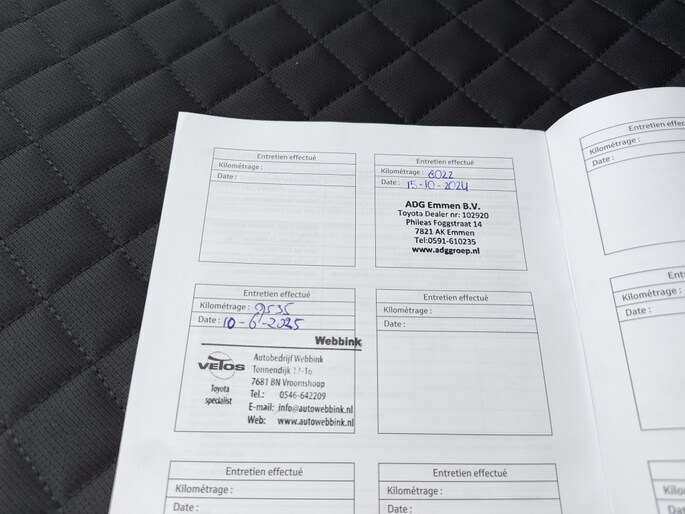 Entretien effectué
Kilométrage :
Date :
Entretien effectué
Kilométrage : 8022
Date : 15-10-2024
ADG Emmen B.V.
Toyota Dealer nr: 102920
Phileas Foggstraat 14
7821 AK Emmen
Tel:0591-610235
www.adggroep.nl
Entretien effectué
Kilométrage :
Date :
Entretien effectué
Kilométrage : 9535
Date : 10-6-2025
Webbink
VETOS
Toyota
specialist
Autobedrijf Webbink
Tonnendijk
7681 BN Vroomshoop
Tel.: 0546-642209
E-mail: info@autowebbink.nl
Web: www.autowebbink.nl
Entretien effectué
Kilométrage :
Date :
Entretien
Kilométrage :
Date :
Entretien effectué
Kilométrage :
Date :
Entretien effectué
Kilométrage :
Date :
Kilométrage